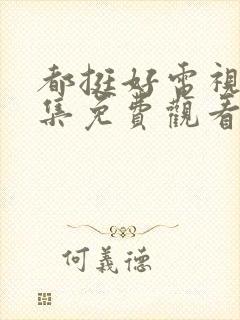 都挺好電視
集免費觀看
何義德